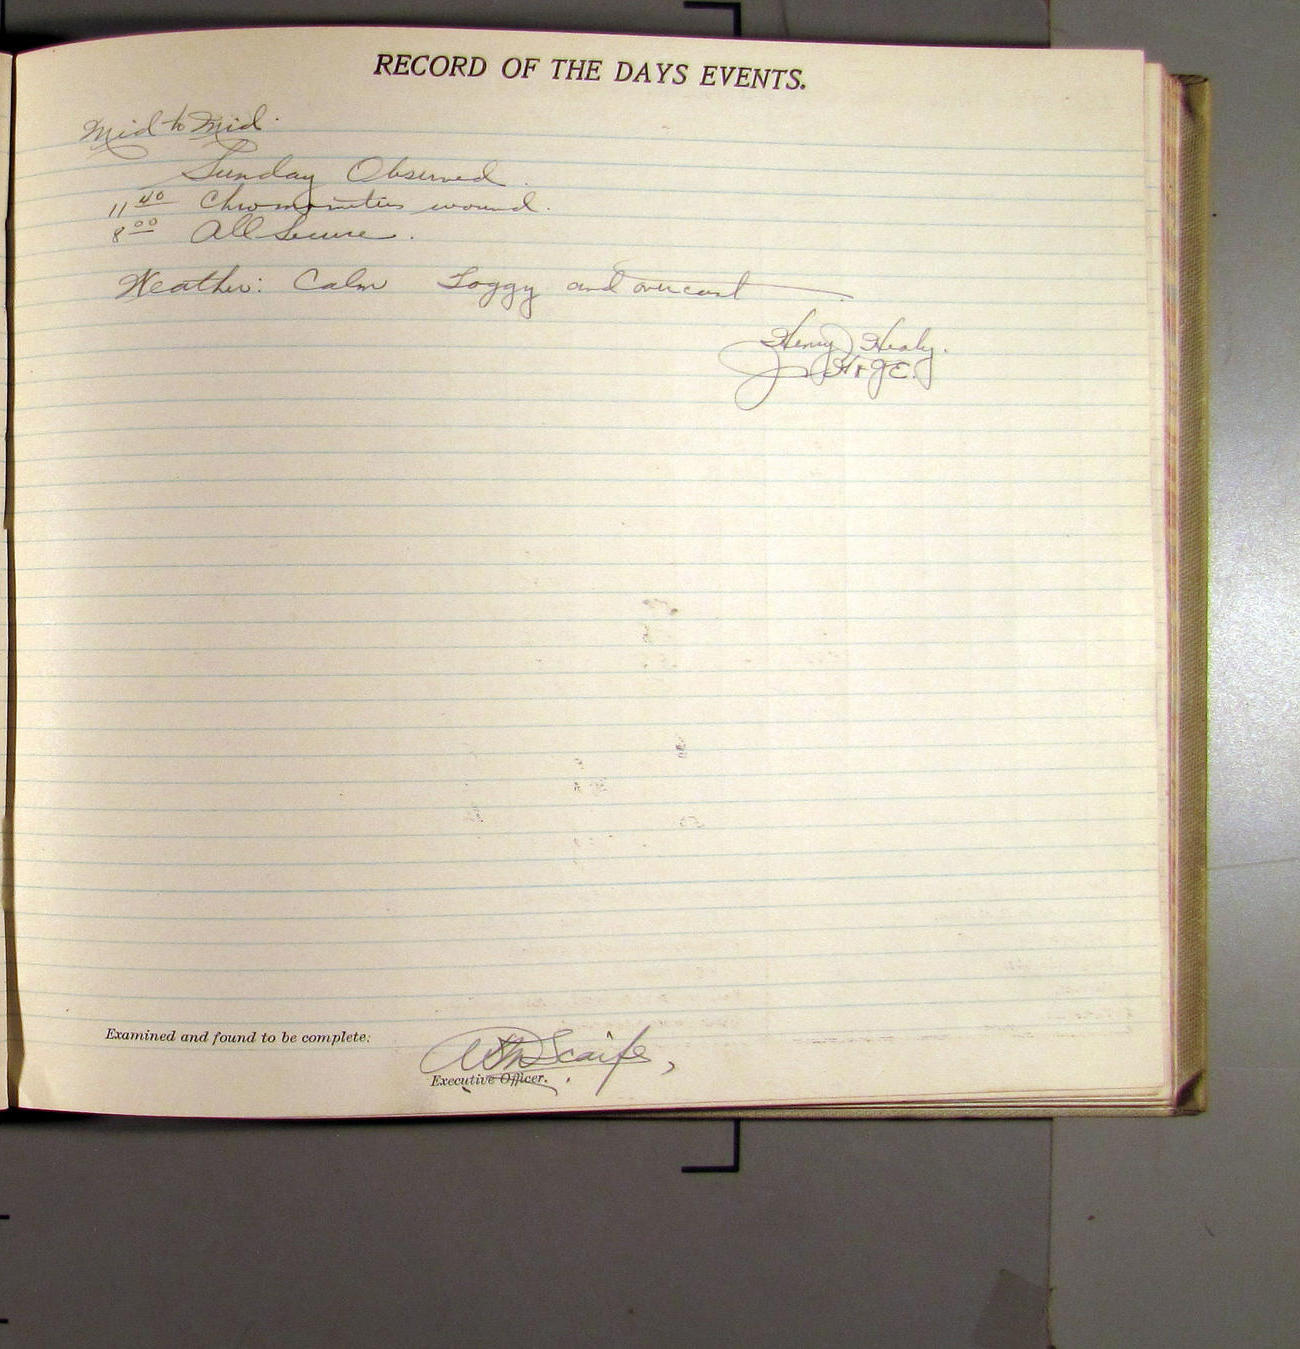 RECORD OF THE DAYS EVENTS.
Mid to Mid.
Sunday Observed.
11 40 Chronometers wound.
8 00 All Secure.
Weather: Calm Foggy and overcast
Henry Healy.
H & J E.
Examined and found to be complete:
Scaife,
Executive Officer.